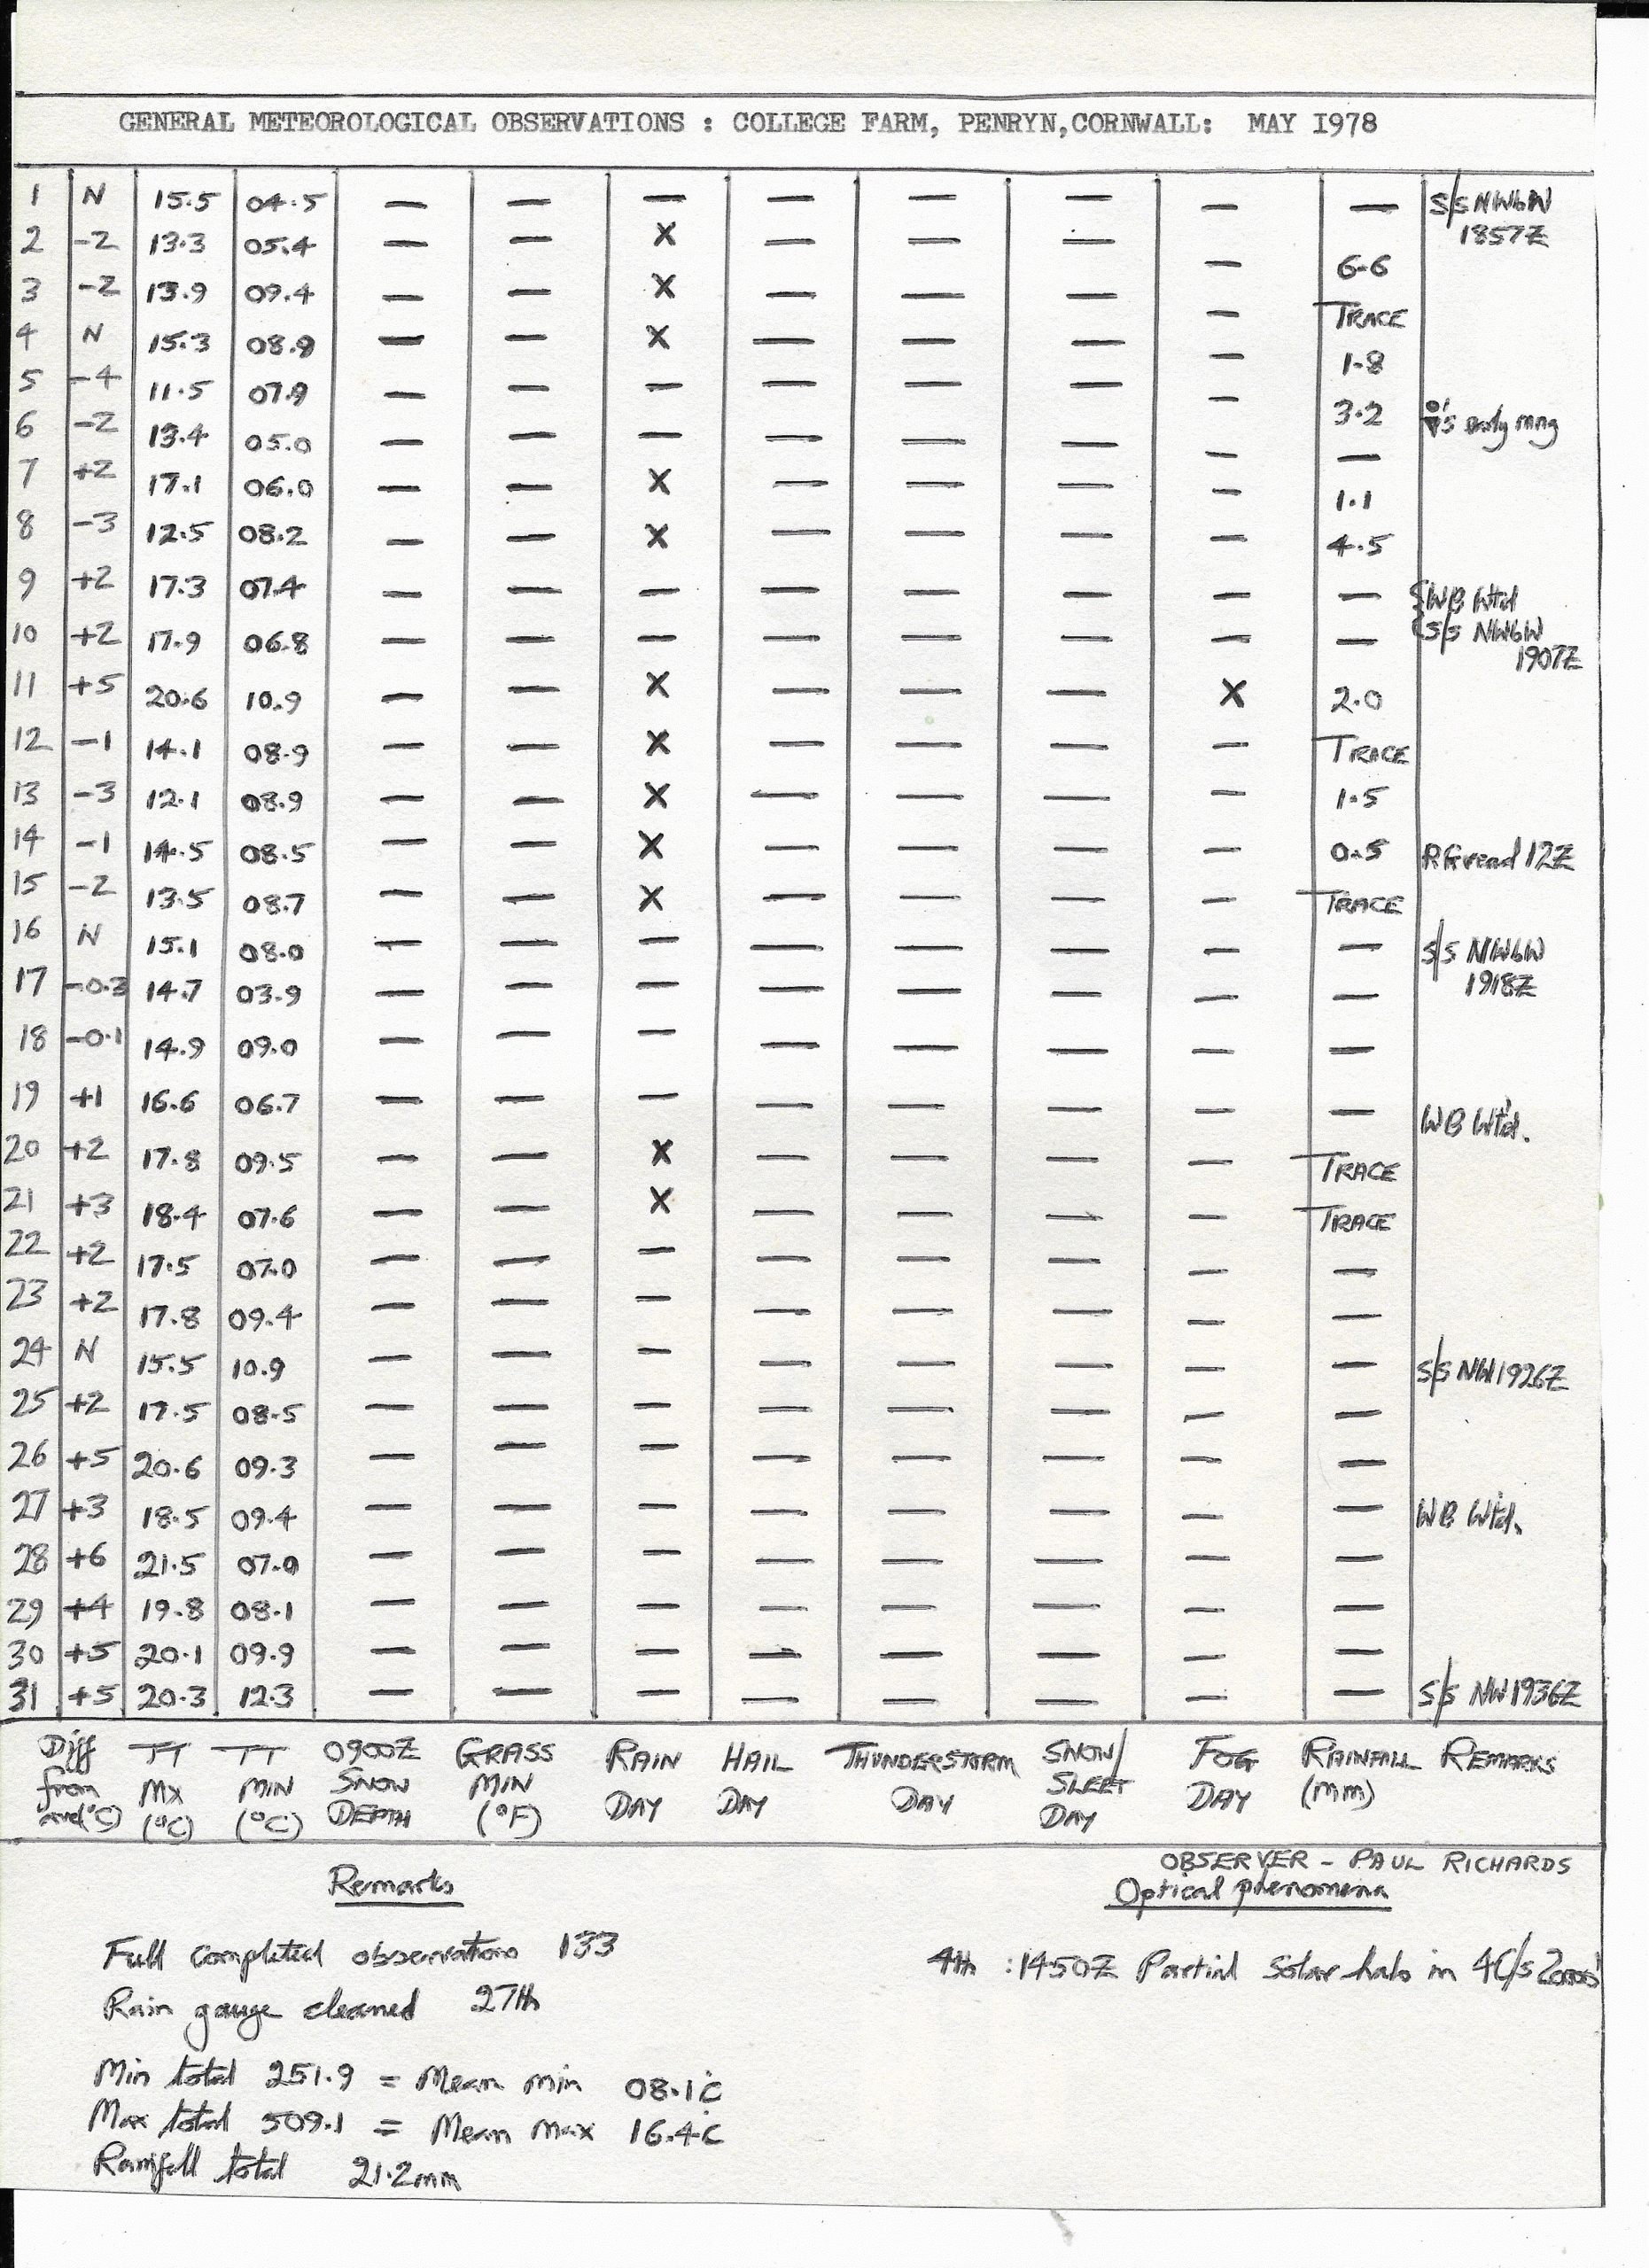 GENERAL METEOROLOGICAL OBSERVATIONS : COLLEGE FARM, PENRYN,CORNWALL: MAY I978
1 N 15.5 04.5 — — — — — — — — S/S NWbW
1857Z
2 -2 13.3 05.4 — — X — — — — 6.6
3 -2 13.9 09.4 — — X — — — — TRACE
4 N 15.3 08.9 — — X — — — — 1.8
5 -4 11.5 07.9 — — — — — — — 3.2 's early mng
6 -2 13.4 05.0 — — — — — — — —
7 +2 17.1 06.0 — — X — — — — 1.1
8 -3 12.5 08.2 — — X — — — — 4.5
9 +2 17.3 07.4 — — — — — — — — WB Wtd
10 +2 17.9 06.8 — — — — — — — — S/S NWbW
1907Z
11 +5 20.6 10.9 — — X — — — X 2.0
12 -1 14.1 08.9 — — X — — — — TRACE
13 -3 12.1 08.9 — — X — — — — 1.5
14 -1 14.5 08.5 — — X — — — — 0.5 RG read 12Z
15 -2 13.5 08.7 — — X — — — — TRACE
16 N 15.1 08.0 — — — — — — — — S/S NWbW
1918Z
17 -0.3 14.7 03.9 — — — — — — — —
18 -0.1 14.9 09.0 — — — — — — — —
19 +1 16.6 06.7 — — — — — — — — WB Wt'd.
20 +2 17.8 09.5 — — X — — — — TRACE
21 +3 18.4 07.6 — — X — — — — TRACE
22 +2 17.5 07.0 — — — — — — — —
23 +2 17.8 09.4 — — — — — — — —
24 N 15.5 10.9 — — — — — — — — S/S NW 1926Z
25 +2 17.5 08.5 — — — — — — — —
26 +5 20.6 09.3 — — — — — — — —
27 +3 18.5 09.4 — — — — — — — — WB Wtd.
28 +6 21.5 07.0 — — — — — — — —
29 +4 19.8 08.1 — — — — — — — —
30 +5 20.1 09.9 — — — — — — — —
31 +5 20.3 12.3 — — — — — — — — S/S NW 1936Z
Diff TT TT 0900Z GRASS RAIN HAIL THUNDERSTORM SNOW/ FOG RAINFALL REMARKS
from MX MIN SNOW MIN DAY DAY DAY SLEET DAY (mm)
ave(°C) (°C) (°C) DEPTH (°F) DAY
OBSERVER - PAUL RICHARDS
Remarks Optical phenomena
Full completed observations 133 4th : 1450Z Partial Solar halo in
Rain gauge cleaned 27th
Min total 251.9 = Mean min 08.1C
Max total 509.1 = Mean max 16.4C
Rainfall total 21.2mm